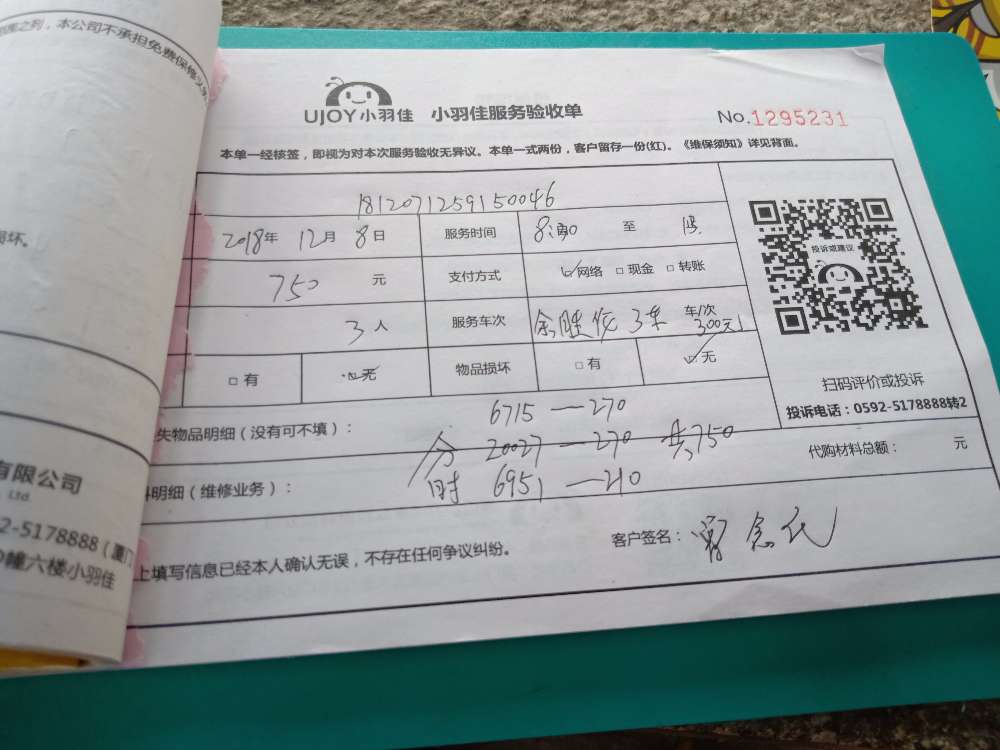 本公司不承担免费保修义
损坏。
有限公司
Ltd.
2-5178888 (厦门
幢六楼小羽佳
UJOY小羽佳 小羽佳服务验收单
No.1295231
本单一经核签，即视为对本次服务验收无异议。本单一式两份，客户留存一份(红)。《维保须知》详见背面。
1812071259150046
2018年 12月 8日 服务时间 至
750 元 支付方式 ☑网络 □现金 □转账
3人 服务车次 3车 车/次
300元
□有 无 物品损坏 □有 无
失物品明细（没有可不填）： 6715—270
分 20027—270 共750
料明细（维修业务）： 时 6951—210
代购材料总额： 元
上填写信息已经本人确认无误，不存在任何争议纠纷。
客户签名：
投诉或建议
扫码评价或投诉
投诉电话：0592-5178888转2